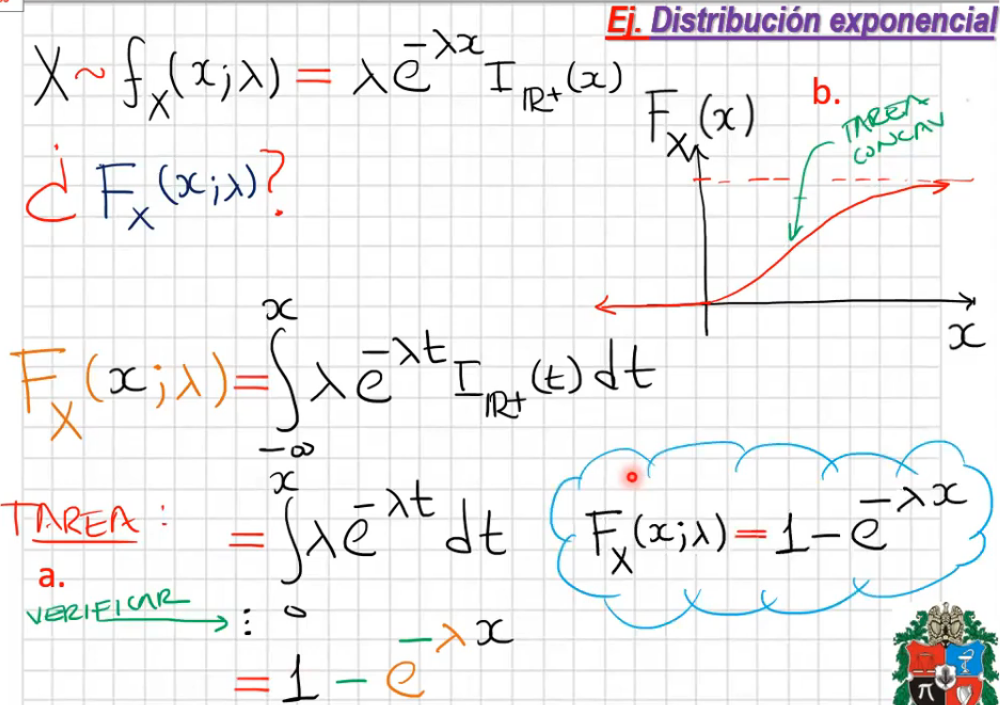 Ej. Distribución exponencial
X ~ f_X(x;λ) = λe^{-λx} I_{ℝ+}(x)
¿ F_X(x;λ)?
F_X(x)
b.
TAREA
CONCAV
x
F_X(x;λ) = ∫_{-∞}^{x} λe^{-λt} I_{ℝ+}(t) dt
TAREA:
= ∫_{0}^{x} λe^{-λt} dt
a.
VERIFICAR
⋮
= 1 - e^{-λx}
F_X(x;λ) = 1 - e^{-λx}
π